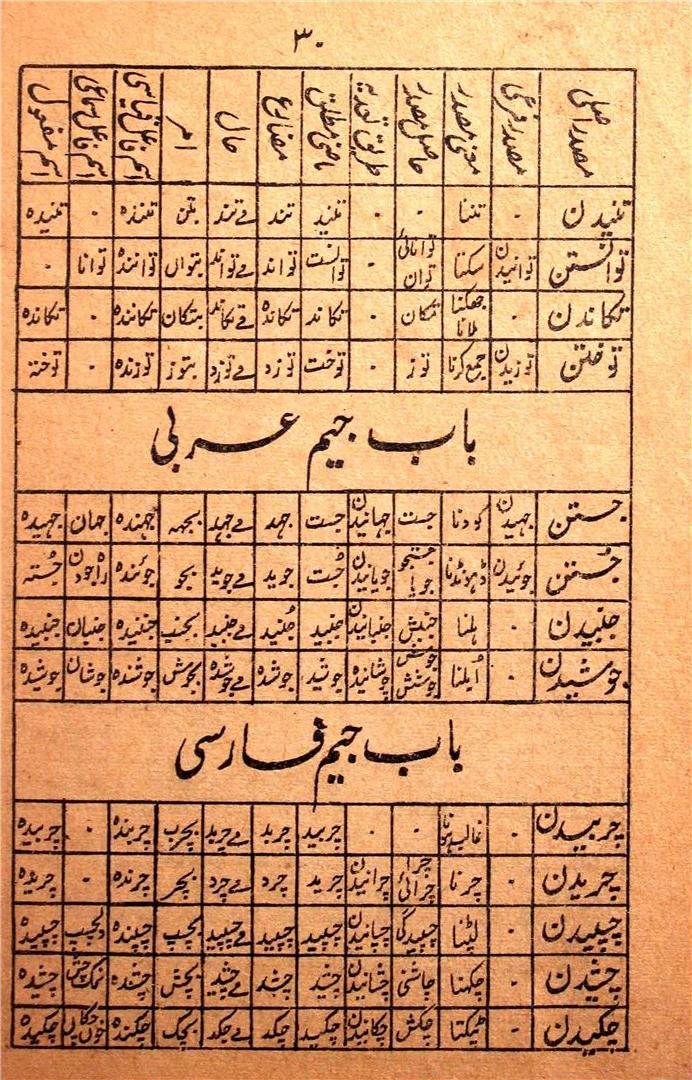 ٣٠
مصدر اصلی مصدر فرعی معنی مصدر حاصل مصدر طریق تعدیہ ماضی مطلق مضارع حال امر اسم فاعل قیاسی اسم فاعل سماعی اسم مفعول
تنیدن ٠ تننا ٠ ٠ تنید تند مے تند بتن تنندہ ٠ تنیدہ
توانستن توانیدن سکنا توانائی توان ٠ توانست تواند مے تواند بتواں توانندہ توانا ٠
تکاندن ٠ جھٹکنا ہلانا تکان ٠ تکاند تکاندہ مے تکاند بتکان تکانندہ ٠ تکاندہ
توختن توزیدن جمع کرنا توز ٠ توخت توزد مے توزد بتوز توزندہ ٠ توختہ
باب جیم عربی
جستن جہیدن کودنا جست جہانیدن جست جہد مے جہد بجہہ جہندہ جہان جہیدہ
جُستن جوئیدن ڈہونڈنا جستجو جویا جویانیدن جُست جوید مے جوید بجو جوئندہ جُستہ
جنبیدن ٠ ہلنا جنبش جنبانیدن جنبید جُنبد مے جنبد بجنب جنبندہ جنباں جنبیدہ
جوشیدن ٠ اُبلنا جوش جوشش جوشانیدہ جوشید جوشدہ مے جوشدہ بجوش جوشندہ جوشاں جوشیدہ
باب جیم فارسی
چربیدن ٠ غالب ہونا ٠ ٠ چربید چربد مے چربد بچرب چربندہ ٠ چربیدہ
چریدن ٠ چرنا چرا چرائی چرانیدن چرید چرد مے چرد بچر چرندہ ٠ چریدہ
چسپیدن ٠ لپٹنا چسپیدگی چسپانیدن چسپید چسپد مے چسپد بچسپ چسپندہ دلچسپ چسپیدہ
چشیدن ٠ چکہنا چاشنی چشانیدن چشید چشد مے چشد بچش چشندہ نمک چش چشیدہ
چکیدن ٠ ٹپکنا چکش چکانیدن چکید چکد مے چکد بچک چکندہ خوں چکاں چکیدہ